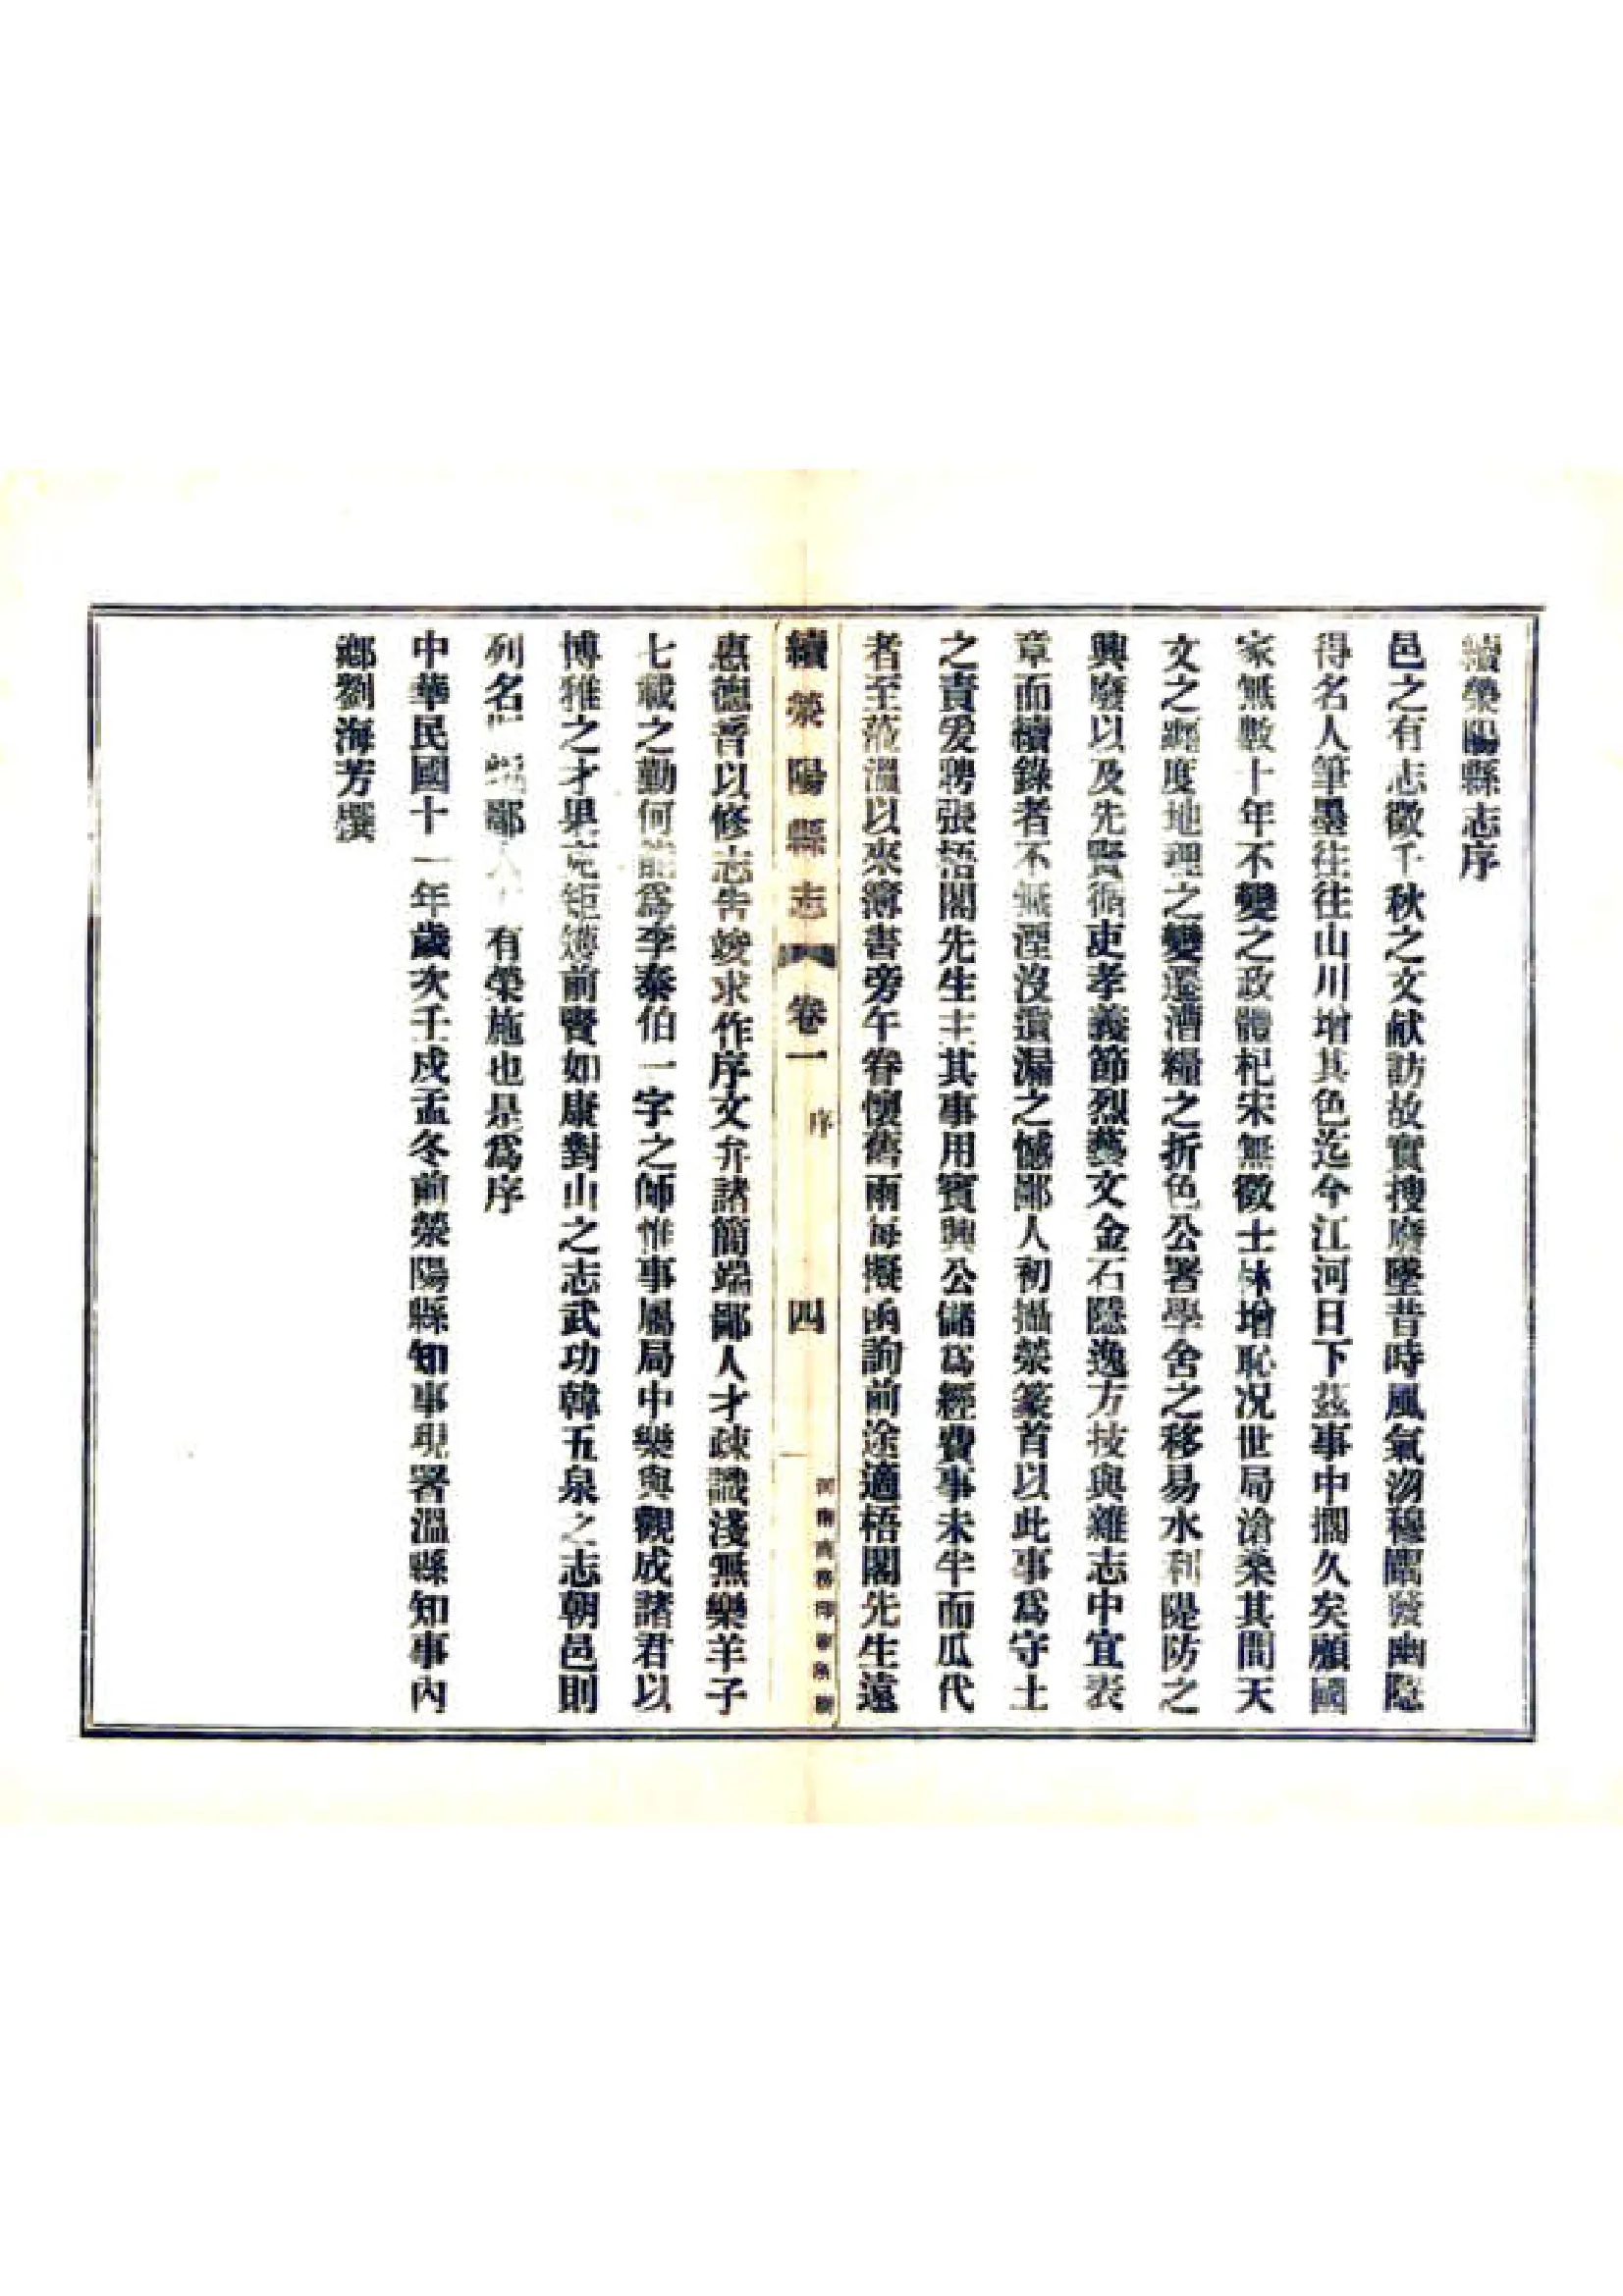 續滎陽縣志序
邑之有志徵千秋之文献訪故實搜廢墜昔時風氣沕穆闡發幽隱
得名人筆墨往往山川增其色迄今江河日下茲事中擱久矣顧國
家無數十年不變之政體杞宋無徵士林增恥况世局滄桑其間天
文之躔度地理之變遷漕糧之折色公署學舍之移易水利隄防之
興廢以及先賢循吏孝義節烈藝文金石隱逸方技與雜志中宜表
章而續錄者不無湮沒遺漏之憾鄙人初攝滎篆首以此事爲守土
之責爰聘張梧閣先生主其事用賓興公儲爲經費事未半而瓜代
者至蒞溫以來簿書旁午眷懷舊雨每擬函詢前途適梧閣先生遠
續滎陽縣志 卷一 序 四
河南商務印書局刷
惠德音以修志告竣求作序文弁諸簡端鄙人才疎識淺無樂羊子
七載之勤何能爲李泰伯一字之師惟事屬局中樂與觀成諸君以
博雅之才果克矩矱前賢如康對山之志武功韓五泉之志朝邑則
列名 端鄙人 有榮施也是爲序
中華民國十一年歲次壬戌孟冬前滎陽縣知事現署溫縣知事內
鄉劉海芳撰